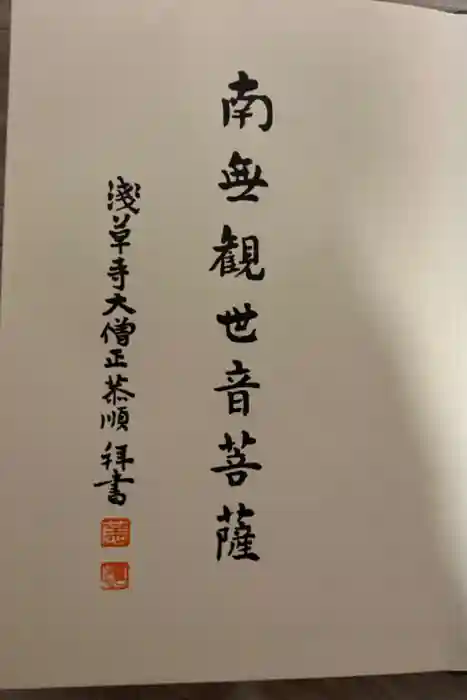 南無観世音菩薩
淺草寺大僧正恭順 拜書